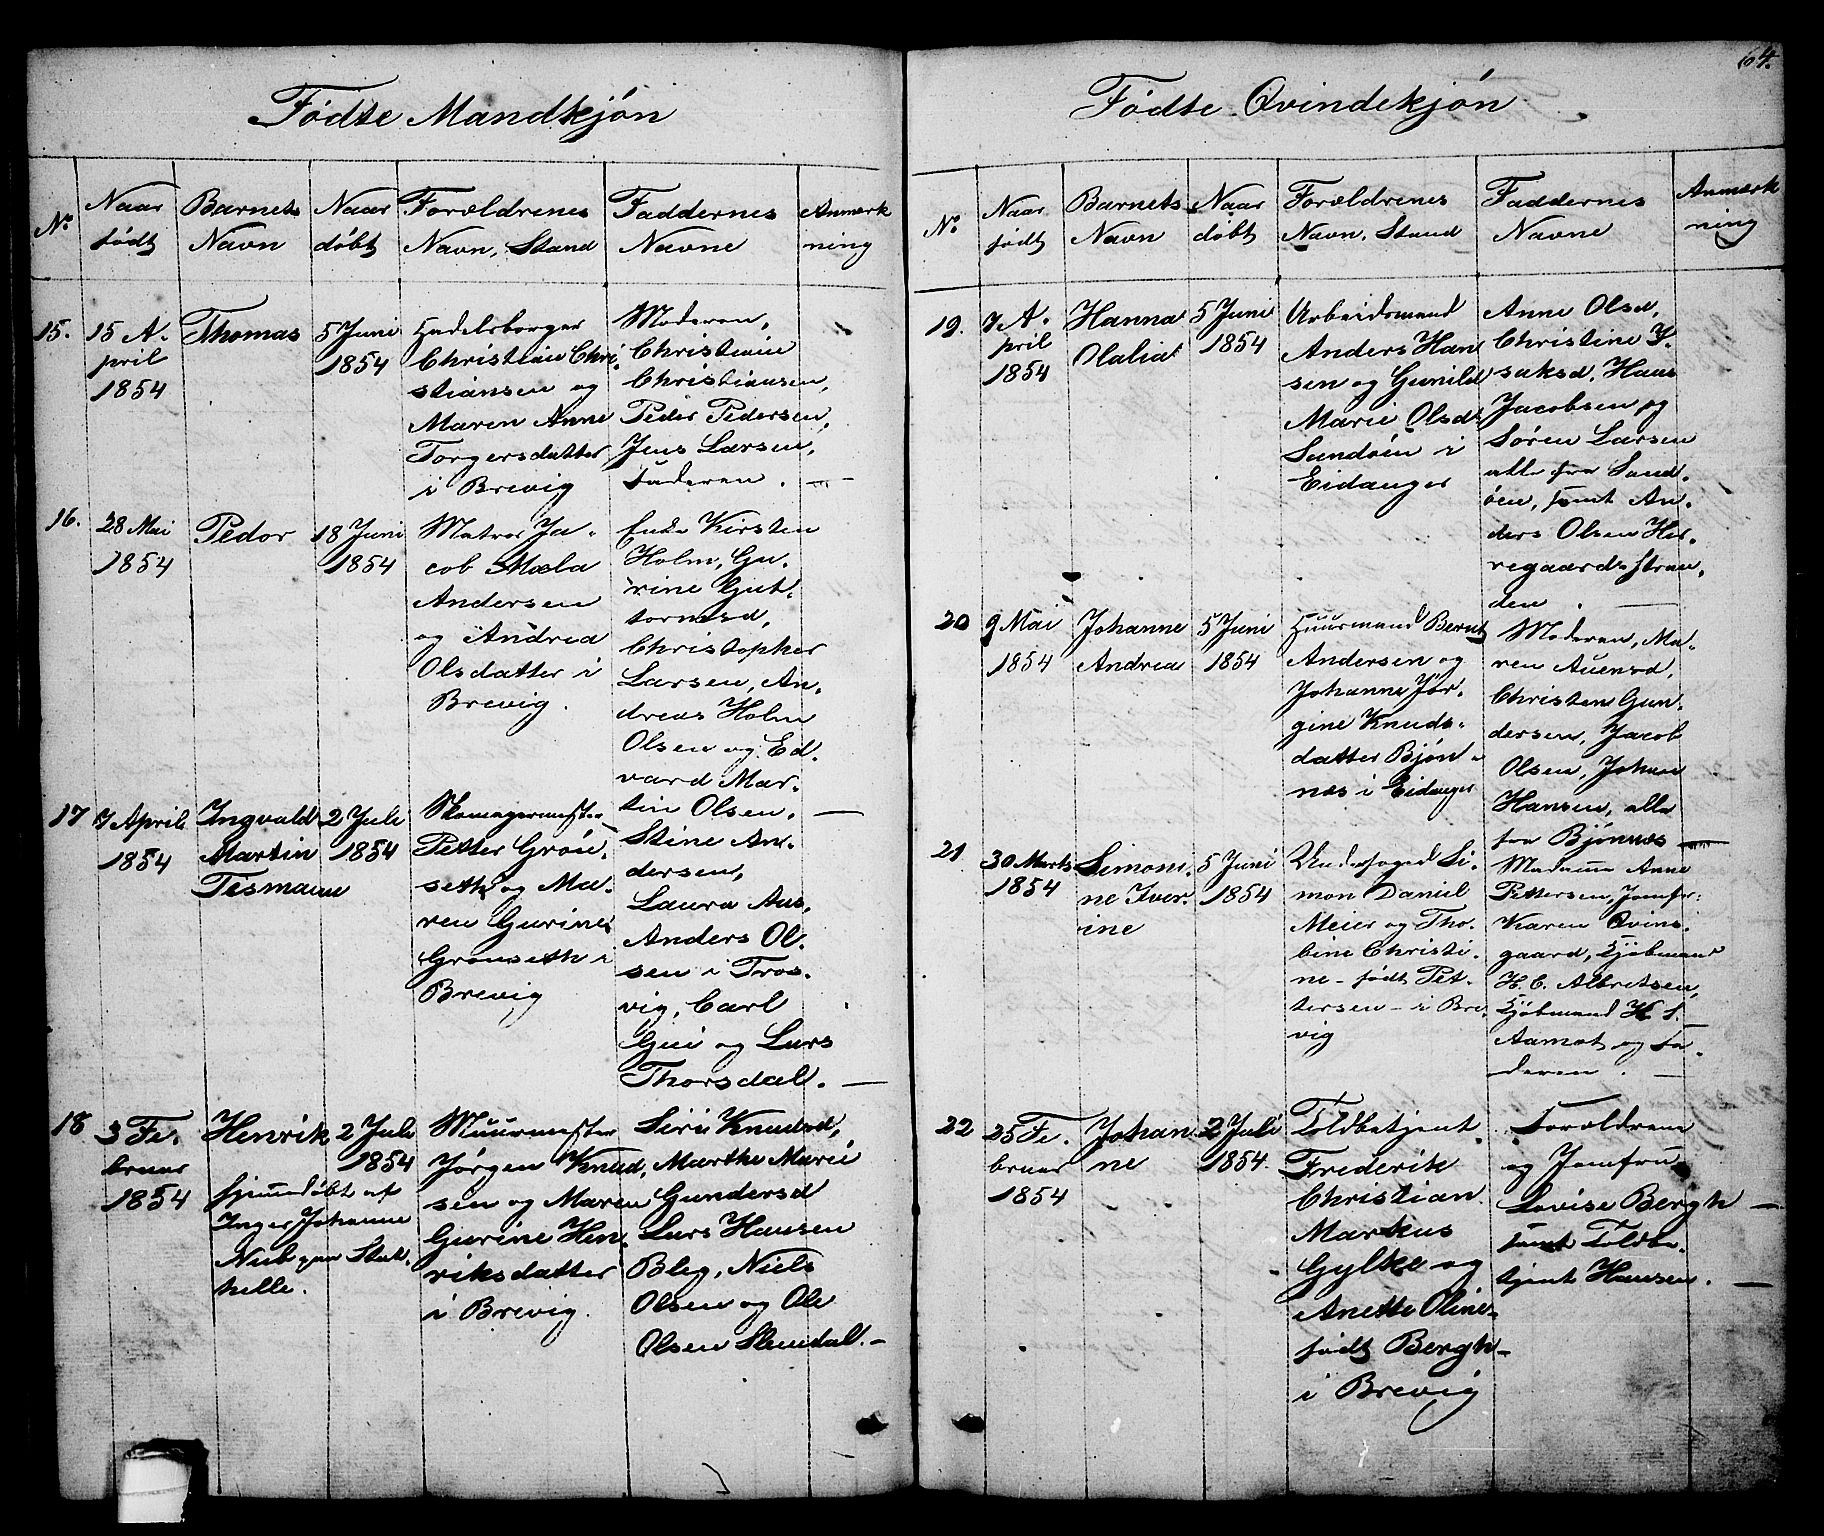 64.
Fødte Mandkjøn
No
Naar
født
Barnets
Navn
Naar
døbt
Forældrenes
Navn, Stand
Faddernes
Navne
Anmærk
ning
15.
15 A-
pril
1854
Thomas
5 Juni
1854
Christian Chri-
stiansen og
Maren Anne
Torgersdatter
i Brevig
Moderen,
Christiane
Christiansen,
Peder Pedersen,
Jens Larsen,
Faderen.
16.
28 Mai
1854
Peder
18 Juni
1854
Matros Ja-
cob Mæla
Andersen
og Andrea
Olsdatter i
Brevig.
Enke Kirsten
Holm, Gu-
rine Gut-
tormsd,
Christopher
Larsen, An-
dreas Holm
Olsen og Ed-
vard Mar-
tin Olsen.
17
7 April
1854
Ingvald
Martin
Tesmann
2 Juli
1854
Petter Grøn-
seth og Ma-
ren Gurine
Grønseth i
Brevig
Stine An-
dersen,
Laura Aas,
Anders Ol-
sen i Tros-
vig, Carl
og Lars
Thorsdal.
18
3 Fe-
bruar
1854
Henrik
hjemmedøbt af
Inger Johanne
Stat-
helle.
2 Juli
1854
Muurmester
Jørgen Knud-
sen og Maren
Gurine Hen-
riksdatter
i Brevig.
Siri Knudsd,
Marthe Marie
Gundersd
Lars Hansen
Bleg, Niels
Olsen og Ole
Olsen Stendal.
Fødte Qvindekjøn
No
Naar
født
Barnets
Navn
Naar
døbt
Forældrenes
Navn, Stand
Faddernes
Navne
Anmærk
ning
19.
7 A-
pril
1854
Hanna
Olalia
5 Juni
1854
Arbeidsmand
Anders Han
sen og Gunild
Marie Olsd
Sandøen i
Eidanger
Anne Olsd,
Christine I-
saksd, Hans
Jacobsen og
Søren Larsen
alle fra Sand-
øen, samt An-
ders Olsen Her-
regaardsstran-
den.
20
9 Mai
1854
Johanne
Andrea
5 Juni
1854
Huusmand Bernt
Andersen og
Johanne Jør-
gine Knuds-
datter Bjøn-
næs i Eidanger
Moderen, Ma-
ren Auensd,
Christen Gun-
dersen, Jacob
Olsen, Johan
Hansen, alle
fra Bjønnæs
21
30 Marts
1854
Simoni-
ne Iver-
ine
5 Juni
1854
Underfoged Si-
mon Daniel
Meier og Tho-
bine Christi-
ne - født Pet-
tersen - i Bre-
vig
Madame Anne
Pettersen, Jomfr:
Karen Qvins-
gaard, Kjøbmand
H. C. Albretsen,
Kjøbmand H. S.
Aamot og Fa-
deren.
22
25 Fe-
bruar
1854
Johan
ne
2 Juli
1854.
Toldbetjent
Frederik
Christian
Markus
Gylke og
Anette Oline-
født Bergh-
i Brevig
Forældrene
og Jomfru
Lovise Bergh
samt Toldbe-
tjent Hansen.